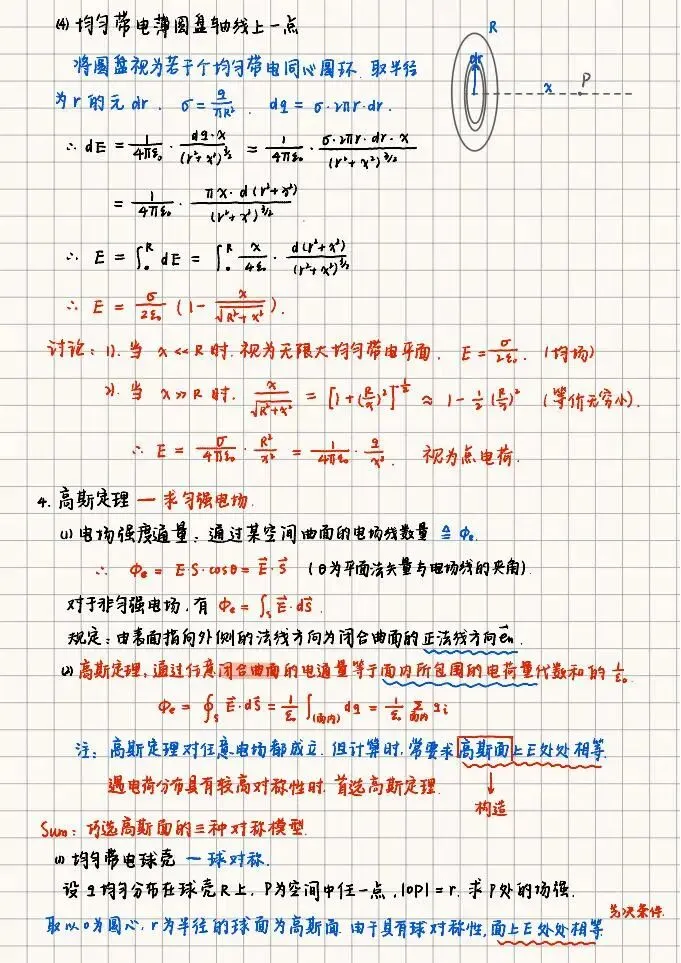 (4) 均匀带电薄圆盘轴线上一点
R
dr
x
P
将圆盘视为若干个均匀带电同心圆环. 取半径
为 r 的元 dr. σ = q/(πR²). dq = σ·2πr·dr.
∴ dE = 1/(4πε₀) · (dq·x)/(r²+x²)^(3/2) = 1/(4πε₀) · (σ·2πr·dr·x)/(r²+x²)^(3/2)
= 1/(4πε₀) · (πx·d(r²+x²))/(r²+x²)^(3/2)
∴ E = ∫₀^R dE = ∫₀^R x/(4ε₀) · d(r²+x²)/(r²+x²)^(3/2)
∴ E = σ/(2ε₀) (1 - x/√(R²+x²)).
讨论: 1). 当 x << R 时. 视为无限大均匀带电平面. E = σ/(2ε₀). (均场)
2). 当 x >> R 时. x/√(R²+x²) = [1+(R/x)²]^(-1/2) ≈ 1 - 1/2 (R/x)² (等价无穷小).
∴ E = σ/(4ε₀) · R²/x² = 1/(4πε₀) · q/x². 视为点电荷.
4. 高斯定理 — 求匀强电场.
(1) 电场强度通量: 通过某空间曲面的电场线数量 ≙ Φe.
∴ Φe = E·S·cosθ = E⃗·S⃗ (θ为平面法矢量与电场线的夹角).
对于非匀强电场, 有 Φe = ∫s E⃗·dS⃗.
规定: 由表面指向外侧的法线方向为闭合曲面的正法线方向e⃗n.
(2) 高斯定理: 通过任意闭合曲面的电通量等于面内所包围的电荷量代数和的 1/ε₀.
Φe = ∮s E⃗·dS⃗ = 1/ε₀ ∫(面内) dq = 1/ε₀ Σ面内 qi
注: 高斯定理对任意电场都成立. 但计算时, 常要求高斯面上E处处相等.
遇电荷分布具有较高对称性时. 首选高斯定理.
构造
Sum: 巧选高斯面的三种对称模型.
(1) 均匀带电球壳 — 球对称.
设 q 均匀分布在球壳 R 上. P为空间中任一点, |OP| = r. 求 P处的场强.
先决条件.
取以O为圆心, r为半径的球面为高斯面. 由于具有球对称性, 面上E处处相等